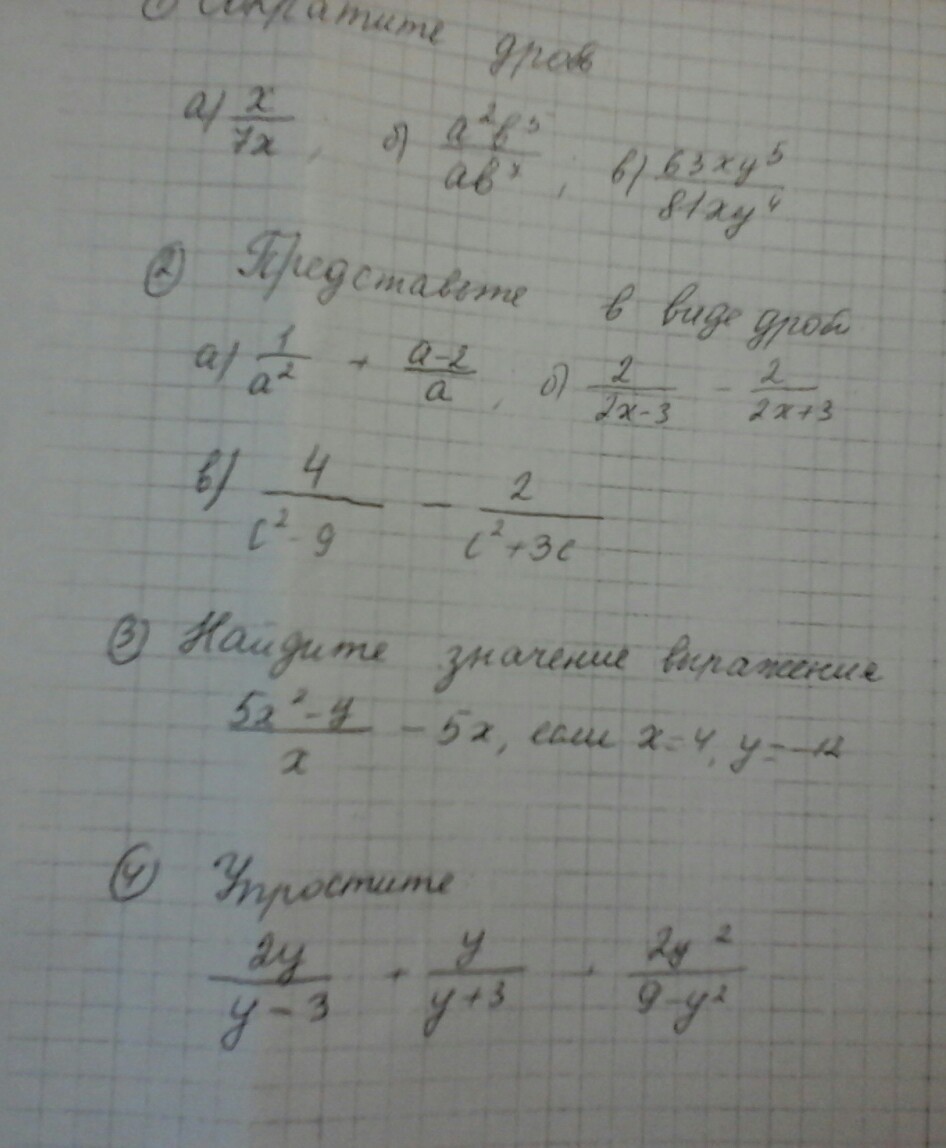 ① Сократите дроб
а) x/7x, б) a²b⁵/ab⁷; в) 63xy⁵/81xy⁴
② Представьте в виде дроби
а) 1/a² + a-2/a, б) 2/2x-3 - 2/2x+3
в) 4/c²-9 - 2/c²+3c
③ Найдите значение выражения
5x²-y/x - 5x, если x=4, y=-12
④ Упростите
2y/y-3 + y/y+3 + 2y²/9-y²